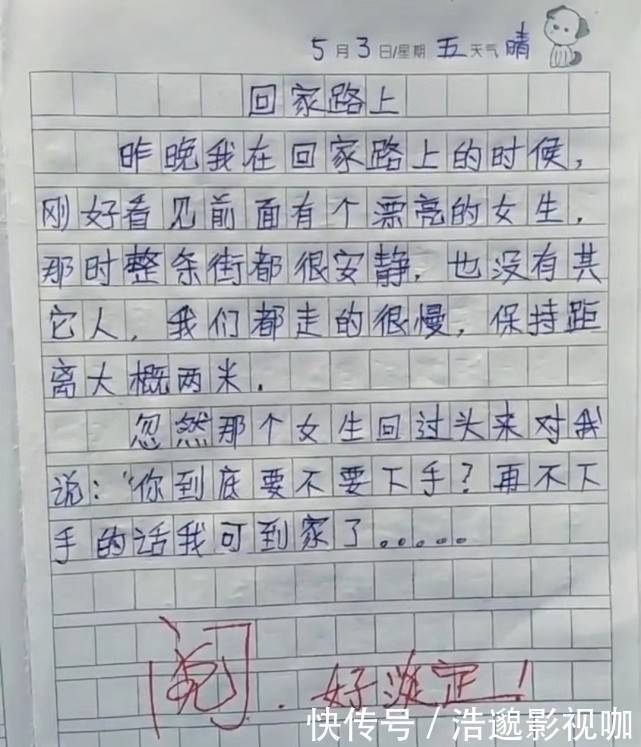 5月3日/星期五天气晴
回家路上
昨晚我在回家路上的时候，
刚好看见前面有个漂亮的女生，
那时整条街都很安静，也没有其
它人，我们都走的很慢，保持距
离大概两米．
忽然那个女生回过头来对我
说："你到底要不要下手？再不下
手的话我可到家了。。。。。
阅．好淡定！
快传号／浩邈影视咖